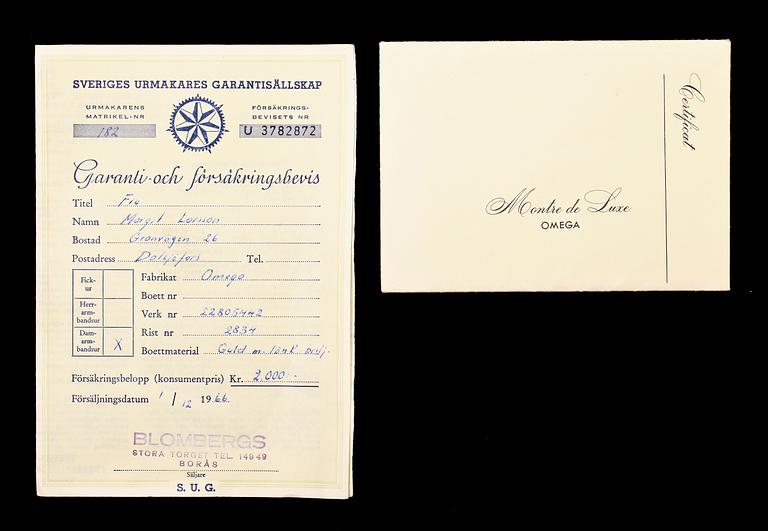 SVERIGES URMAKARES GARANTISÄLLSKAP
URMAKARENS
MATRIKEL-NR
182
FÖRSÄKRINGS-
BEVISETS NR
U 3782872
Garanti- och försäkringsbevis
Titel Fru
Namn Margit Larsson
Bostad Granvägen 26
Postadress Dalsjöfors Tel.
Fick-
ur
Herr-
arm-
bandsur
Dam-
arm-
bandsur X
Fabrikat Omega
Boett nr
Verk nr 22805442
Rist nr 2834
Boettmaterial Guld m. länk
Försäkringsbelopp (konsumentpris) Kr. 2.000:-
Försäljningsdatum 1 / 12 1966.
BLOMBERGS
STORA TORGET TEL. 14949
BORÅS
Säljare
S. U. G.
Certificat
Montre de Luxe
OMEGA